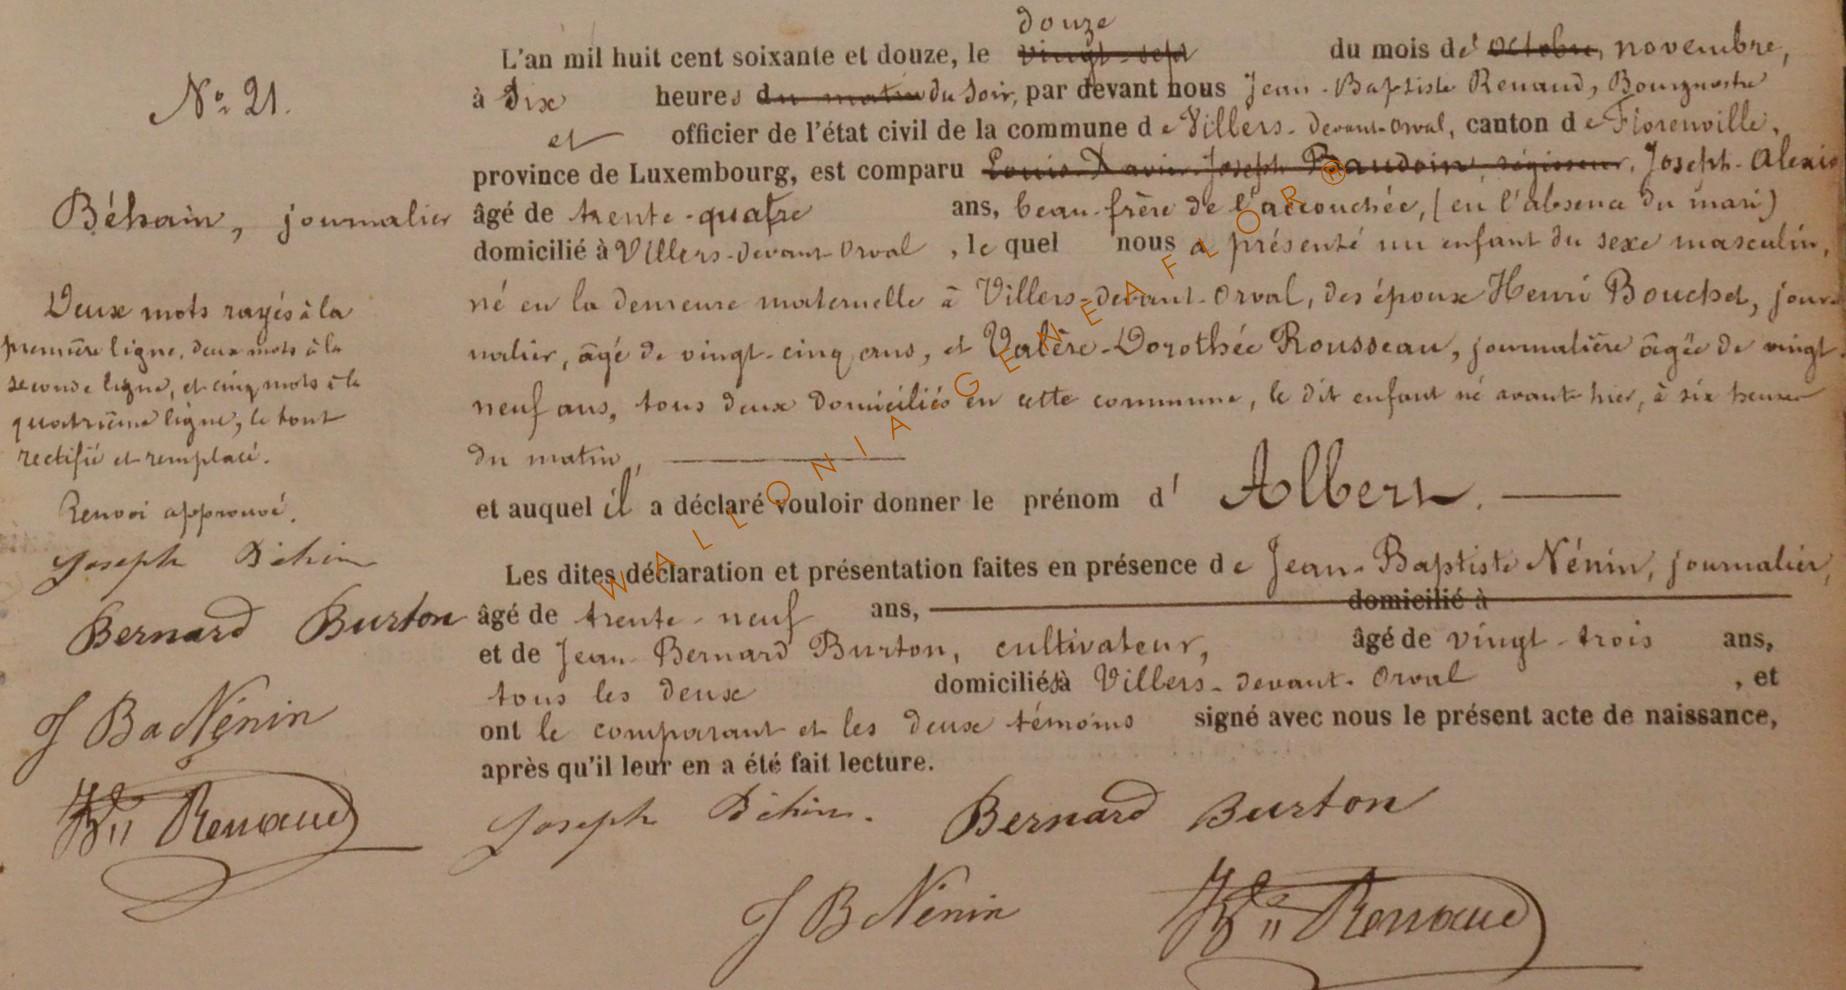 N° 21.
douze
L'an mil huit cent soixante et douze, le vingt-sept du mois de octobre, novembre,
à dix heures du matin du soir, par devant nous Jean-Baptiste Renaud, Bourgmestre
et officier de l'état civil de la commune de Villers-devant-Orval, canton de Florenville,
province de Luxembourg, est comparu Louis Xavier Joseph Baudoin, régisseur, Joseph-Alexis
Béhain, journalier âgé de trente-quatre ans, beau-frère de l'accouchée, (en l'absence du mari)
domicilié à Villers-devant-Orval, lequel nous a présenté un enfant du sexe masculin,
né en la demeure maternelle à Villers-devant-Orval, des époux Henri Bouchet, jour-
nalier, âgé de vingt-cinq ans, et Valère-Dorothée Rousseau, journalière âgée de vingt-
neuf ans, tous deux domiciliés en cette commune, le dit enfant né avant-hier, à six heures
du matin,
et auquel il a déclaré vouloir donner le prénom d'Albert.
Les dites déclaration et présentation faites en présence de Jean-Baptiste Nénin, journalier,
âgé de trente-neuf ans, domicilié à
et de Jean Bernard Burton, cultivateur, âgé de vingt-trois ans,
tous les deux domiciliés à Villers-devant-Orval, et
ont le comparant et les deux témoins signé avec nous le présent acte de naissance,
après qu'il leur en a été fait lecture.
Joseph Béhin. Bernard Burton
J B Nénin Renaud
Deux mots rayés à la
première ligne, deux mots à la
seconde ligne, et cinq mots à la
quatrième ligne, le tout
rectifié et remplacé.
Renvoi approuvé.
Joseph Béhin
Bernard Burton
J Ba Nénin
Renaud
WALLONIA GENEAFLOR®